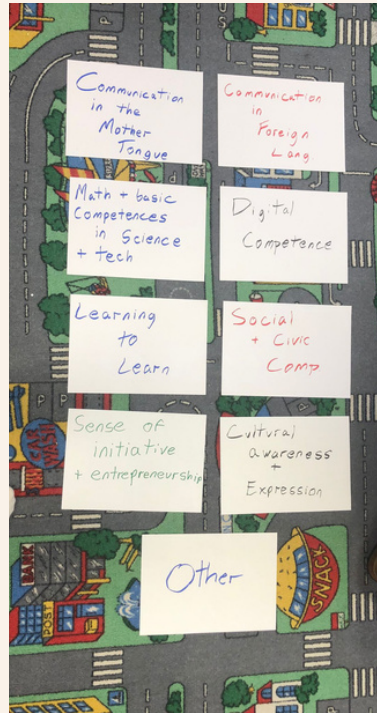 Communication
in the
Mother
Tongue
Communication
in
Foreign
Lang
Math + basic
Competences
in Science
+ tech
Digital
Competence
Learning
to
Learn
Social
+ Civic
Comp
Sense of
initiative
+ entrepreneurship
Cultural
awareness
+
Expression
Other
P
P
CAR
WASH
BANK
POST
SNACK